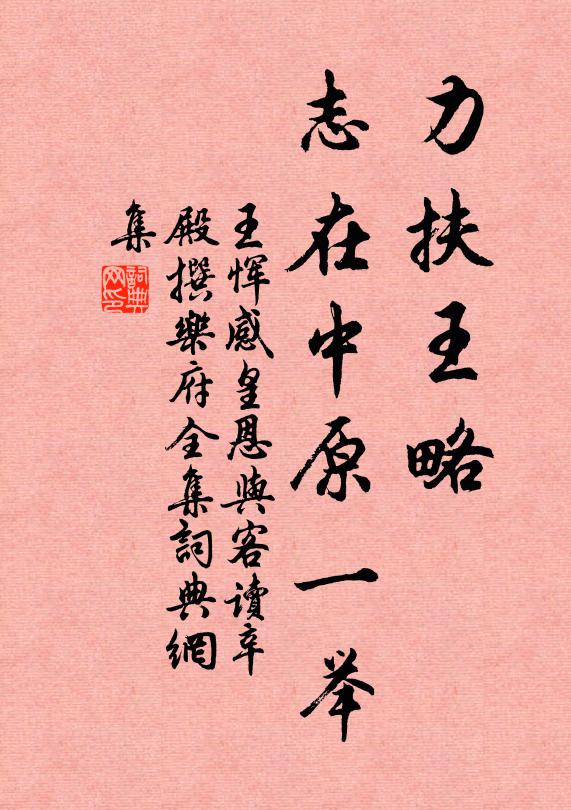 力扶王略
志在中原一举
王恽感皇恩與客读辛
殿撰樂府全集詞典網
集
詞典网印